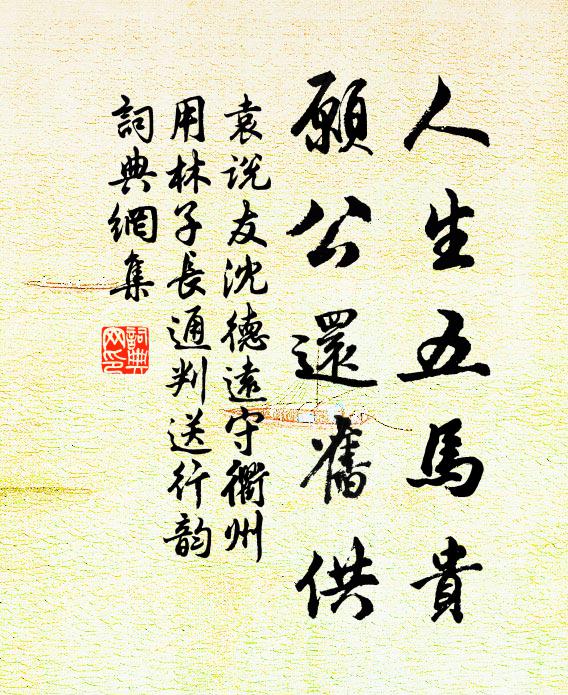 人生五馬貴
願公還舊供
袁说友沈德遠守衢州
用林子長通判送行韵
詞典網集
詞典網印